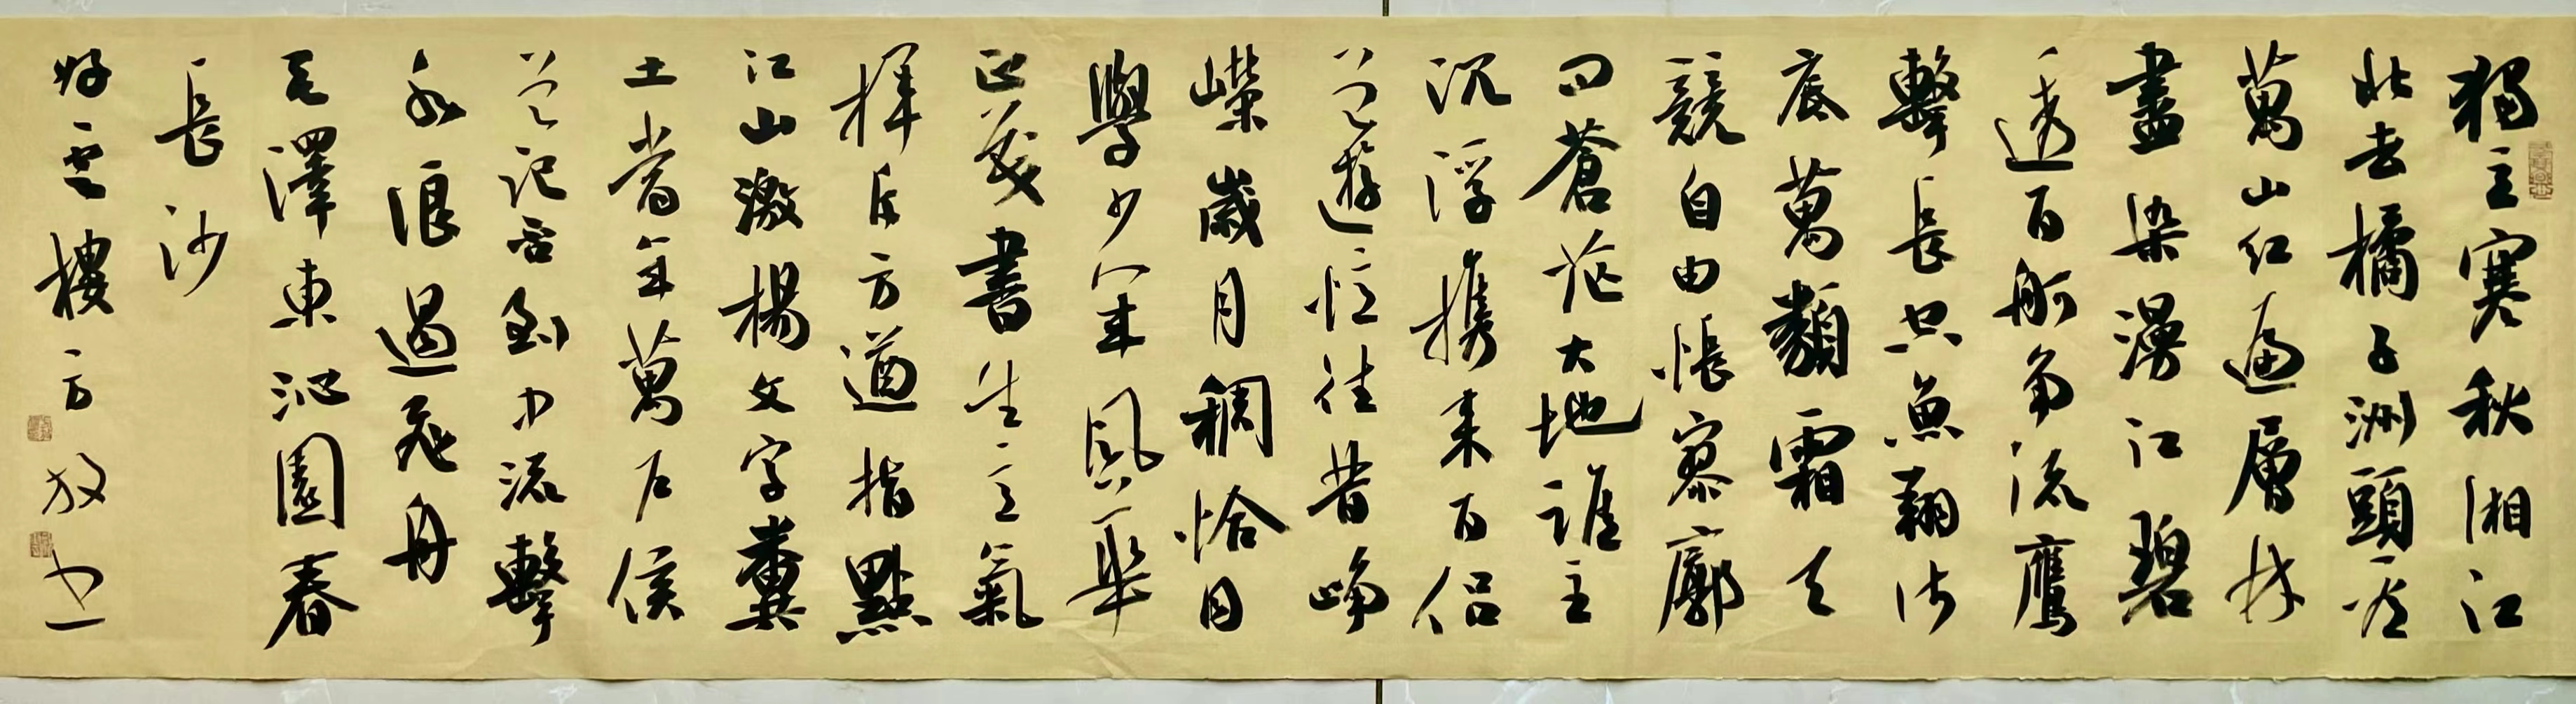 獨立寒秋湘江
北去橘子洲頭看
萬山紅遍層林
盡染漫江碧
透百舸爭流鷹
擊長空魚翔淺
底萬類霜天
競自由悵寥廓
問蒼茫大地誰主
沉浮携來百侶
曾遊憶往昔崢
嶸歲月稠恰同
學少年風華
正茂書生意氣
揮斥方遒指點
江山激楊文字糞
土當年萬户侯
曾記否到中流擊
水浪遏飛舟
毛澤東沁園春
長沙
好雲樓方放